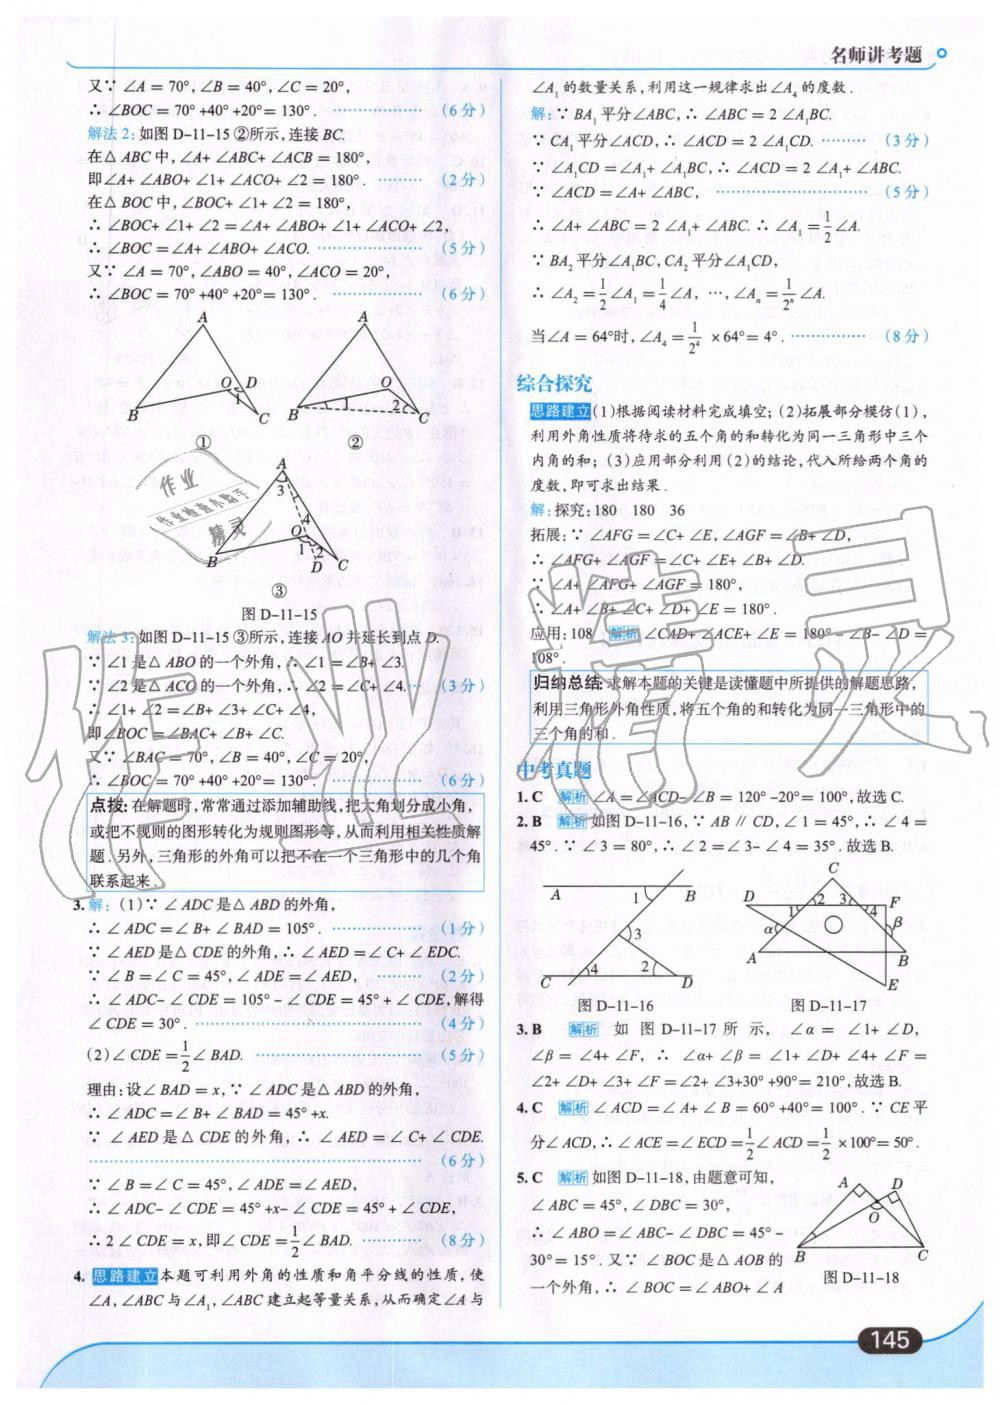 名师讲考题
又∵ ∠A = 70°,∠B = 40°,∠C = 20°,
∴ ∠BOC = 70° +40° +20° = 130°. ……………… (6分)
解法 2:如图 D-11-15 ②所示,连接 BC.
在△ ABC 中,∠A+ ∠ABC+ ∠ACB = 180°,
即∠A+ ∠ABO+ ∠1+ ∠ACO+ ∠2 = 180°. ………… (2分)
在△ BOC 中,∠BOC+ ∠1+ ∠2 = 180°,
∴ ∠BOC+ ∠1+ ∠2 = ∠A+ ∠ABO+ ∠1+ ∠ACO+ ∠2,
∴ ∠BOC = ∠A+ ∠ABO+ ∠ACO. ……………… (5分)
又∵ ∠A = 70°,∠ABO = 40°,∠ACO = 20°,
∴ ∠BOC = 70° +40° +20° = 130°. ……………… (6分)
A
O D
1
B C
①
A
O
1 2
B C
②
A
3
4
O
1 2
B D C
③
图 D-11-15
解法 3:如图 D-11-15 ③所示,连接 AO 并延长到点 D.
∵ ∠1 是△ ABO 的一个外角,∴ ∠1 = ∠B+ ∠3.
∵ ∠2 是△ ACO 的一个外角,∴ ∠2 = ∠C+ ∠4. … (3分)
∴ ∠1+ ∠2 = ∠B+ ∠3+ ∠C+ ∠4,
即∠BOC = ∠BAC+ ∠B+ ∠C.
又∵ ∠BAC = 70°,∠B = 40°,∠C = 20°,
∴ ∠BOC = 70° +40° +20° = 130°. ……………… (6分)
点拨:在解题时,常常通过添加辅助线,把大角划分成小角,
或把不规则的图形转化为规则图形等,从而利用相关性质解
题.另外,三角形的外角可以把不在一个三角形中的几个角
联系起来.
3. 解:(1)∵ ∠ADC 是△ ABD 的外角,
∴ ∠ADC = ∠B+ ∠BAD = 105°. ……………… (1分)
∵ ∠AED 是△ CDE 的外角,∴ ∠AED = ∠C+ ∠EDC.
∵ ∠B = ∠C = 45°,∠ADE = ∠AED, ………… (2分)
∴ ∠ADC- ∠CDE = 105° - ∠CDE = 45° + ∠CDE,解得
∠CDE = 30°. …………………………… (4分)
(2)∠CDE = 1/2 ∠BAD. …………………… (5分)
理由:设∠BAD = x,∵ ∠ADC 是△ ABD 的外角,
∴ ∠ADC = ∠B+ ∠BAD = 45° +x.
∵ ∠AED 是△ CDE 的外角,∴ ∠AED = ∠C+ ∠CDE.
…………………………………………… (6分)
∵ ∠B = ∠C = 45°,∠ADE = ∠AED,
∴ ∠ADC- ∠CDE = 45° +x- ∠CDE = 45° + ∠CDE,
∴ 2 ∠CDE = x,即∠CDE = 1/2 ∠BAD. ………… (8分)
4. 思路建立 本题可利用外角的性质和角平分线的性质,使
∠A,∠ABC 与∠A₁,∠ABC 建立起等量关系,从而确定∠A 与
∠A₁ 的数量关系,利用这一规律求出∠A₄ 的度数.
解:∵ BA₁ 平分∠ABC,∴ ∠ABC = 2 ∠A₁BC.
∵ CA₁ 平分∠ACD,∴ ∠ACD = 2 ∠A₁CD. ……… (3分)
∵ ∠A₁CD = ∠A₁+ ∠A₁BC,∴ ∠ACD = 2 ∠A₁+ ∠ABC.
∵ ∠ACD = ∠A+ ∠ABC, …………………… (5分)
∴ ∠A+ ∠ABC = 2 ∠A₁+ ∠ABC. ∴ ∠A₁ = 1/2 ∠A.
∵ BA₂ 平分∠A₁BC,CA₂ 平分∠A₁CD,
∴ ∠A₂ = 1/2 ∠A₁ = 1/4 ∠A, …,∠Aₙ = 1/2ⁿ ∠A.
当∠A = 64°时,∠A₄ = 1/2⁴ × 64° = 4°. ………… (8分)
综合探究
思路建立 (1)根据阅读材料完成填空;(2)拓展部分模仿(1),
利用外角性质将待求的五个角的和转化为同一三角形中三个
内角的和;(3)应用部分利用(2)的结论,代入所给两个角的
度数,即可求出结果.
解:探究:180 180 36
拓展:∵ ∠AFG = ∠C+ ∠E,∠AGF = ∠B+ ∠D,
∴ ∠AFG+ ∠AGF = ∠C+ ∠E+ ∠B+ ∠D.
∵ ∠A+ ∠AFG+ ∠AGF = 180°,
∴ ∠A+ ∠B+ ∠C+ ∠D+ ∠E = 180°.
应用:108 解析 ∠CAD+ ∠ACE+ ∠E = 180° - ∠B- ∠D =
108°.
归纳总结:求解本题的关键是读懂题中所提供的解题思路,
利用三角形外角性质,将五个角的和转化为同一三角形中的
三个角的和.
中考真题
1. C 解析 ∠A = ∠ACD- ∠B = 120° -20° = 100°,故选 C.
2. B 解析 如图 D-11-16,∵ AB // CD,∠1 = 45°,∴ ∠4 =
45°. ∵ ∠3 = 80°,∴ ∠2 = ∠3- ∠4 = 35°. 故选 B.
A 1 B
3
4 2
C D
图 D-11-16
C
D 1 2 3 4 F
α β
A B
E
图 D-11-17
3. B 解析 如图 D-11-17 所示, ∠α = ∠1+ ∠D,
∠β = ∠4+ ∠F, ∴ ∠α+ ∠β = ∠1+ ∠D+ ∠4+ ∠F =
∠2+ ∠D+ ∠3+ ∠F = ∠2+ ∠3+30° +90° = 210°,故选 B.
4. C 解析 ∠ACD = ∠A+ ∠B = 60° +40° = 100°. ∵ CE 平
分∠ACD,∴ ∠ACE = ∠ECD = 1/2 ∠ACD = 1/2 × 100° = 50°.
5. C 解析 如图 D-11-18,由题意可知,
∠ABC = 45°,∠DBC = 30°,
∴ ∠ABO = ∠ABC- ∠DBC = 45° -
30° = 15°. 又∵ ∠BOC 是△ AOB 的
一个外角,∴ ∠BOC = ∠ABO+ ∠A
A D
O
B C
图 D-11-18
145
作业
作业检查小助手
精灵
作业精灵